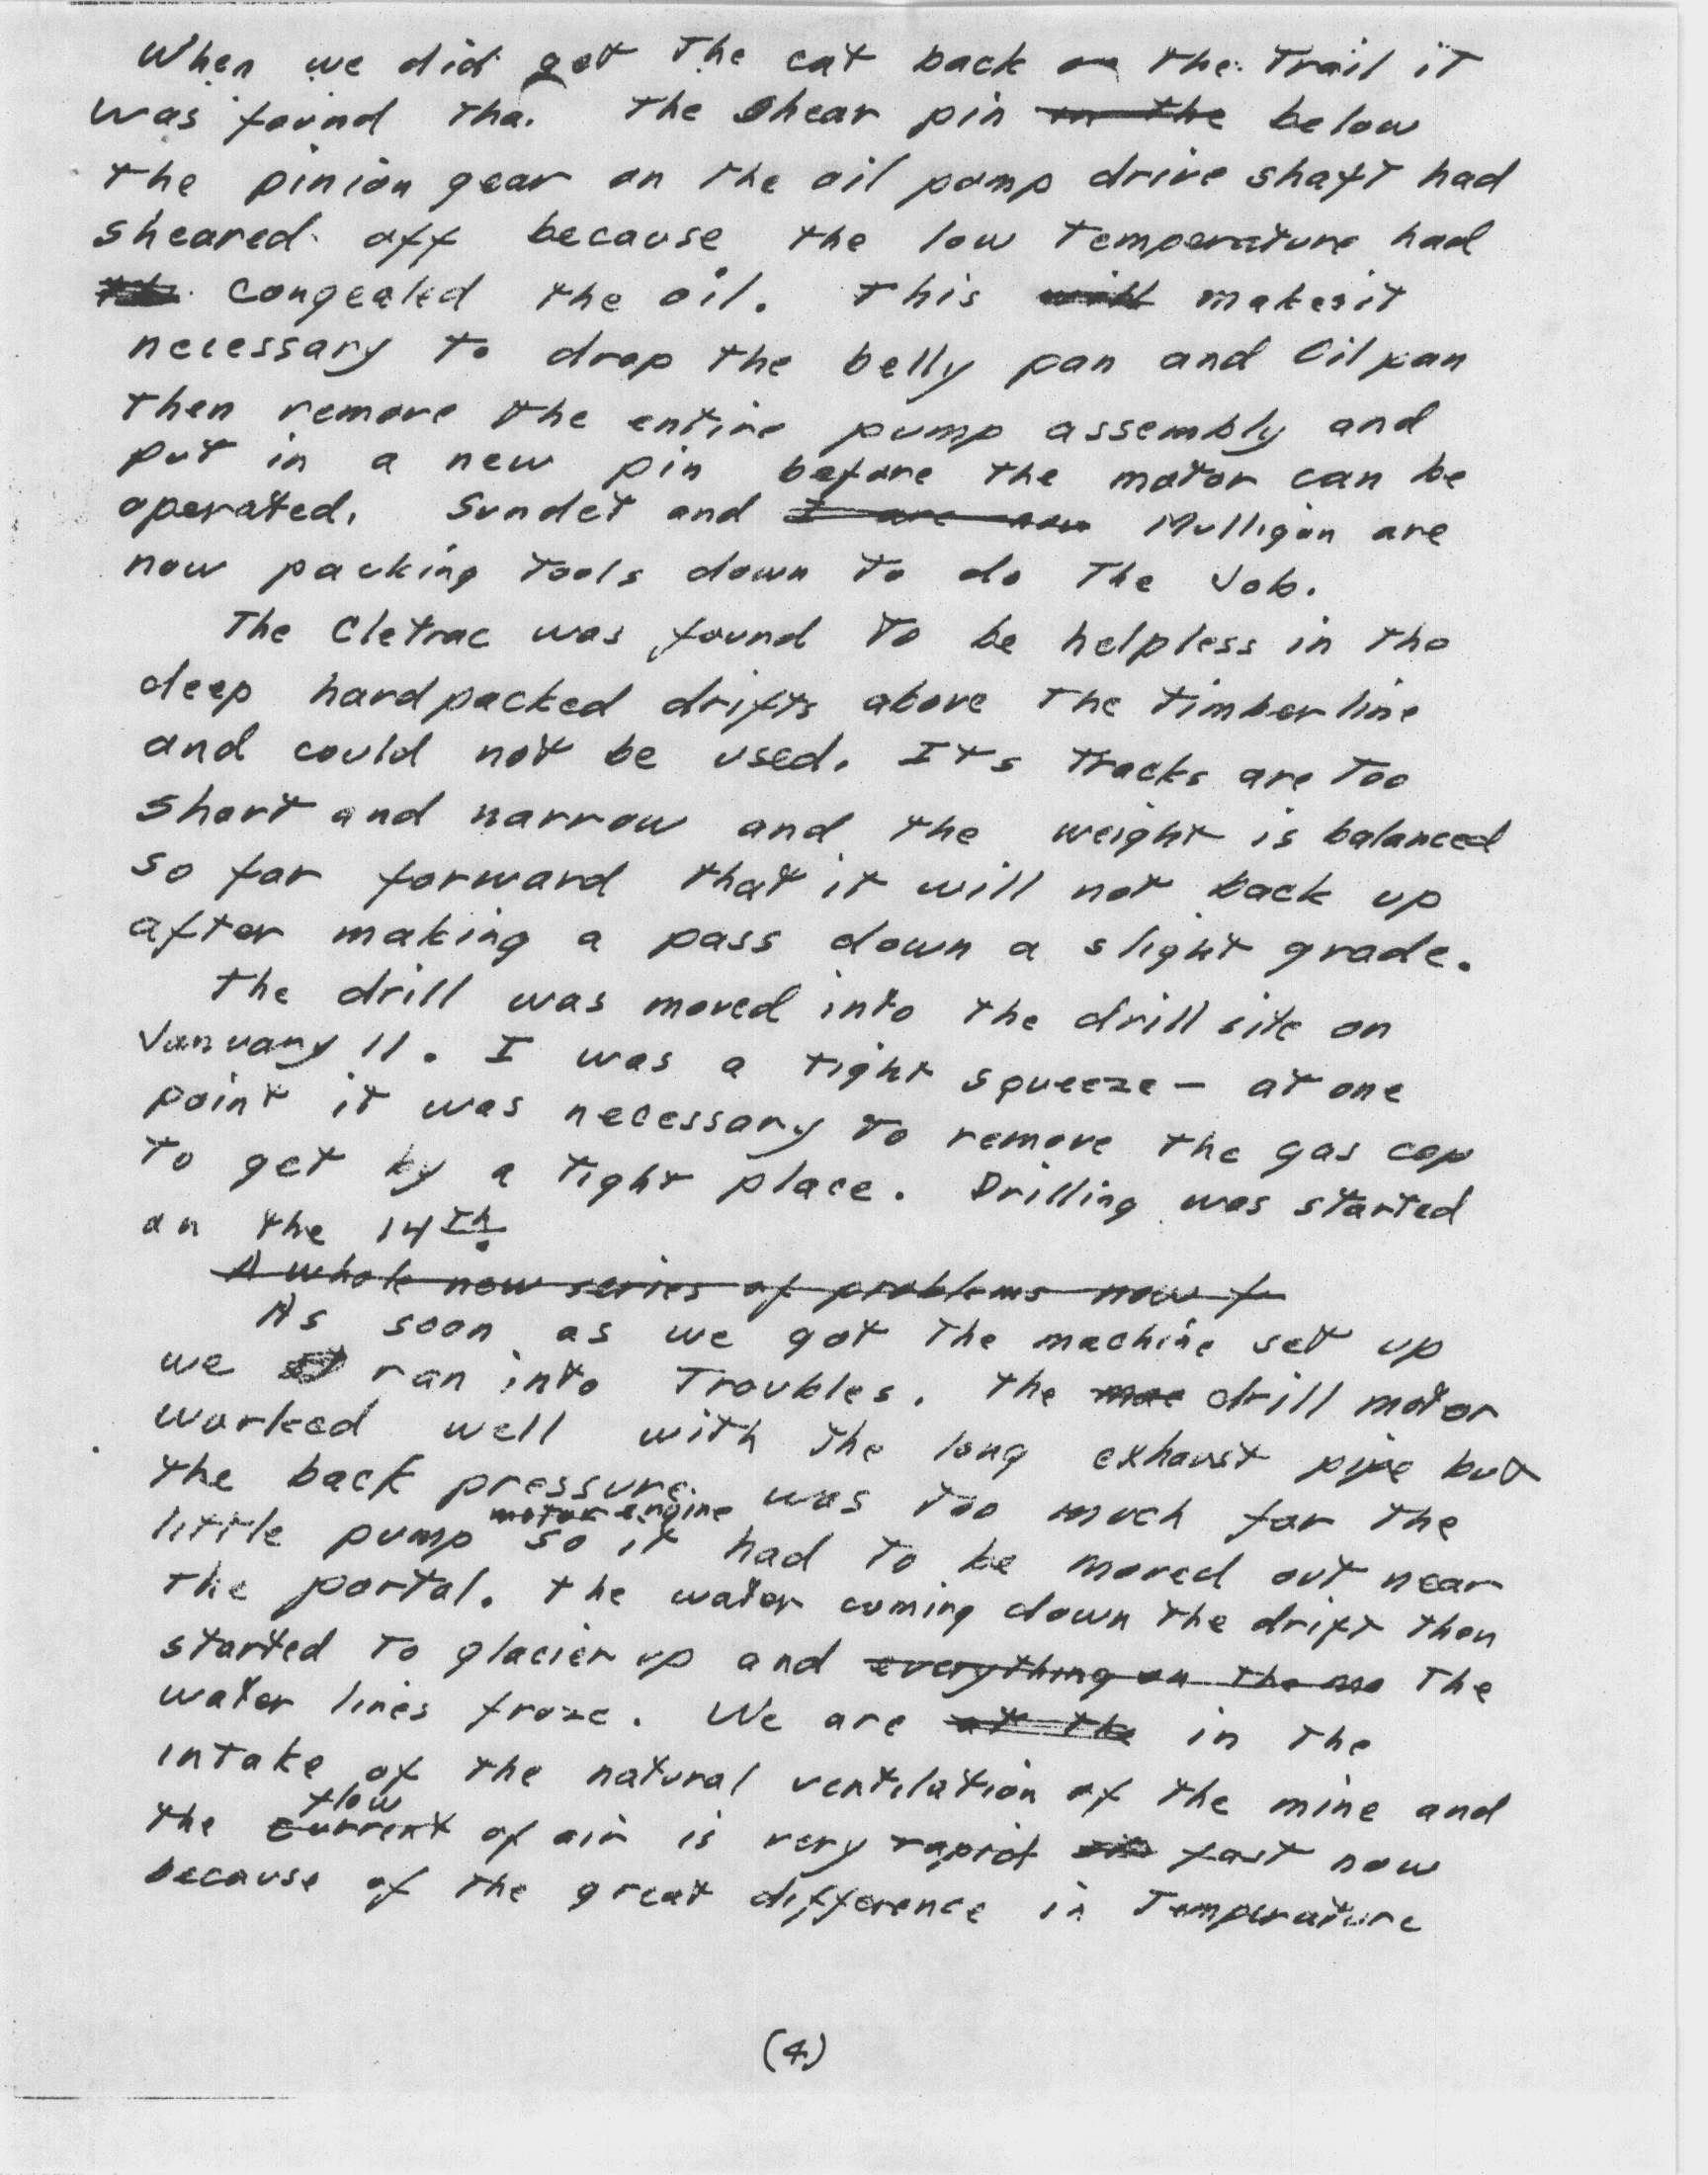 When we did get the cat back on the trail it
was found tha. the shear pin in the below
the pinion gear on the oil pump drive shaft had
sheared off because the low temperature had
the congealed the oil. This will makes it
necessary to drop the belly pan and Oil pan
then remove the entire pump assembly and
put in a new pin before the motor can be
operated. Sundet and I are now Mulligan are
now packing tools down to do the Job.
The Cletrac was found to be helpless in the
deep hardpacked drifts above the timberline
and could not be used. It's tracks are too
short and narrow and the weight is balanced
so far forward that it will not back up
after making a pass down a slight grade.
The drill was moved into the drill site on
January 11. I was a tight squeeze - at one
point it was necessary to remove the gas cap
to get by a tight place. Drilling was started
on the 14th.
A whole new series of problems now f
As soon as we got the machine set up
we ran into troubles. The mae drill motor
worked well with the long exhaust pipe but
the back pressure was too much for the
motor engine
little pump so it had to be moved out near
the portal. The water coming down the drift then
started to glacier up and everything on the ma the
water lines froze. We are at the in the
intake of the natural ventilation of the mine and
flow
the current of air is very rapid fast now
because of the great difference in temperature
(4)